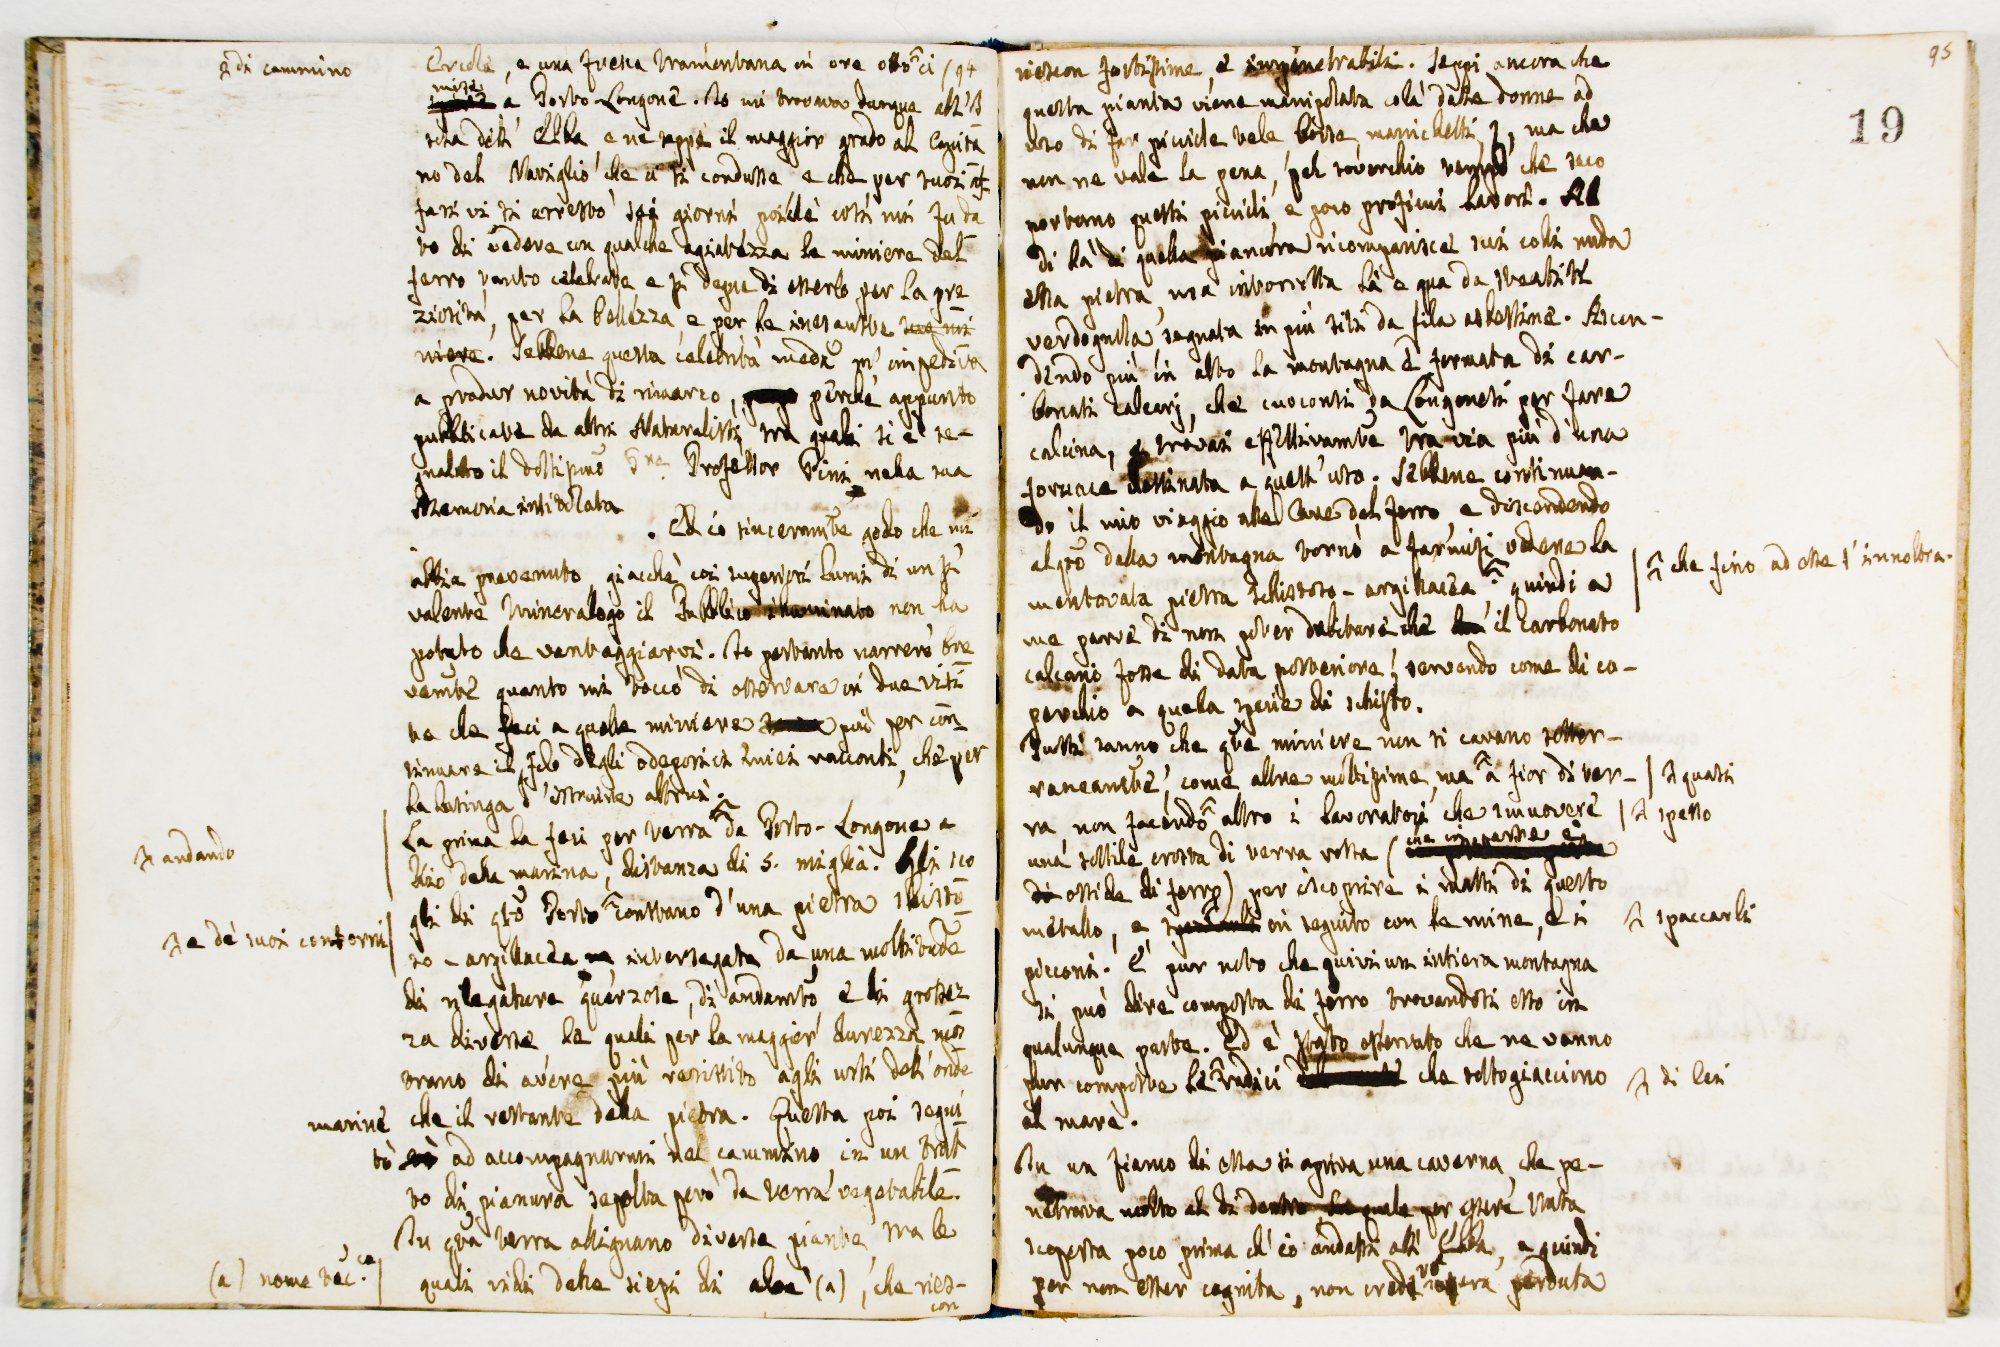 ⁁ di cammino
Ercole, e una fresca tramontana in ore otto ci (94
mise
a Porto-Longone. Io mi trovava dunque all'I
sola dell' Elba, e ne seppi il maggior grado al Capita
no del Naviglio che ci si condusse e che per suoi af
fari vi si arrestò sei giorni poichè così mi fu da
to di vedere con qualche agiatezza le miniere del
ferro tanto celebrate e sì degne di esserlo per la pre
ziosità, per la bellezza, e per le inesauste sue mi
niere. Sebbene questa celebrità medᵃ m' impediva
a produr novità di rimarco, perchè appunto
pubblicate da altri Naturalisti, tra quali si è se-
gnalato il dottissimo Professor Pini nella sua
Memoria intitolata
. Ed io sinceramte godo che mi
abbia prevenuto, giacchè coi superiori lumi di un sì
valente Mineralogo il Pubblico illuminato non ha
potuto che vantaggiarvi. Io pertanto narrerò bre
vemte quanto mi toccò di osservare in due visi
te che feci a quelle miniere più per con
tinuare il filo degli odeporici miei racconti, che per
la lusinga d' istruire altrui.
La prima la feci per terra ⁁ da Porto-Longone a
⁁ andando
Rio della marina, distanza di 5. miglia. Gli sco
gli di qto Porto ⁁ constano d' una pietra schisto
⁁ e de' suoi contorni
so-argillacea intersegata da una moltitudne
di rilegature quarzose, di andamto e di grossez
za diverse, le quali per la maggior durezza mos
trano di avere più resistito agli urti dell' onde
marine che il restante della pietra. Questa poi segui
tò ad accompagnarmi nel cammino in un trat
to di pianura sepolta però da terra vegetabile.
In qta terra allignano diverse piante, tra le
(a) nome bot.co
quali vidi delle siepi di aloè (a), che ries-
con
95
19
riescon foltissime, e impenetrabili. Seppi ancora che
questa pianta viene manipolata colà dalle donne ad
uso di far picciole tele borse, manichetti, ⁁, ma che
non ne vale la pena, pel soverchio tempo che seco
portano questi piccioli e poco proficui lavori. Al
di là di quella pianura ricomparisce sui colli nuda
essa pietra, ma intorsetta là e qua da steatiti
verdognola segnata in più siti da fila asbestine. Ascen-
dendo più in alto la montagna è formata di car-
bonati calcarj, che cuoconsi da Longonesi per fare
calcina, e trovasi effettivamte tra via più d' una
fornace destinata a quell' uso. Sebbene continuan-
do il mio viaggio alle Cave del ferro, e discendendo
al giù della montagna tornò a farmisi vedere la
mentovata pietra schistoso-argillacea ⁁ quindi a
⁁ che fino ad esse s' innoltra.
me parve di non poter dubitare che il Carbonato
calcario fosse di data posteriore, servendo come di co-
perchio a quella specie di schisto.
Tutti sanno che qte miniere non si cavano sotter-
raneamte, come altre moltissime, ma ⁁ a fior di ter-
⁁ quasi
ra non facendo ⁁ altro i lavoratori che rimuovere
⁁ spesso
una sottile crosta di terra rossa (che in parte è
di ossido di ferro) per iscoprire i massi di questo
metallo, e in seguito con le mine, e i
⁁ spaccarli
picconi. È pur noto che quivi un' intiera montagna
si può dire composta di ferro trovandosi esso in
qualunque parte. Ed è stato osservato che ne vanno
pur composte le ⁁ radici che sottogiacciono
⁁ di lei
al mare.
In un fianco di essa si apriva una caverna, che pe-
netrava molto al di dentro la quale per essere stata
scoperta poco prima ch' io andassi all' Elba, e quindi
per non esser cognita, non credi opera perduta